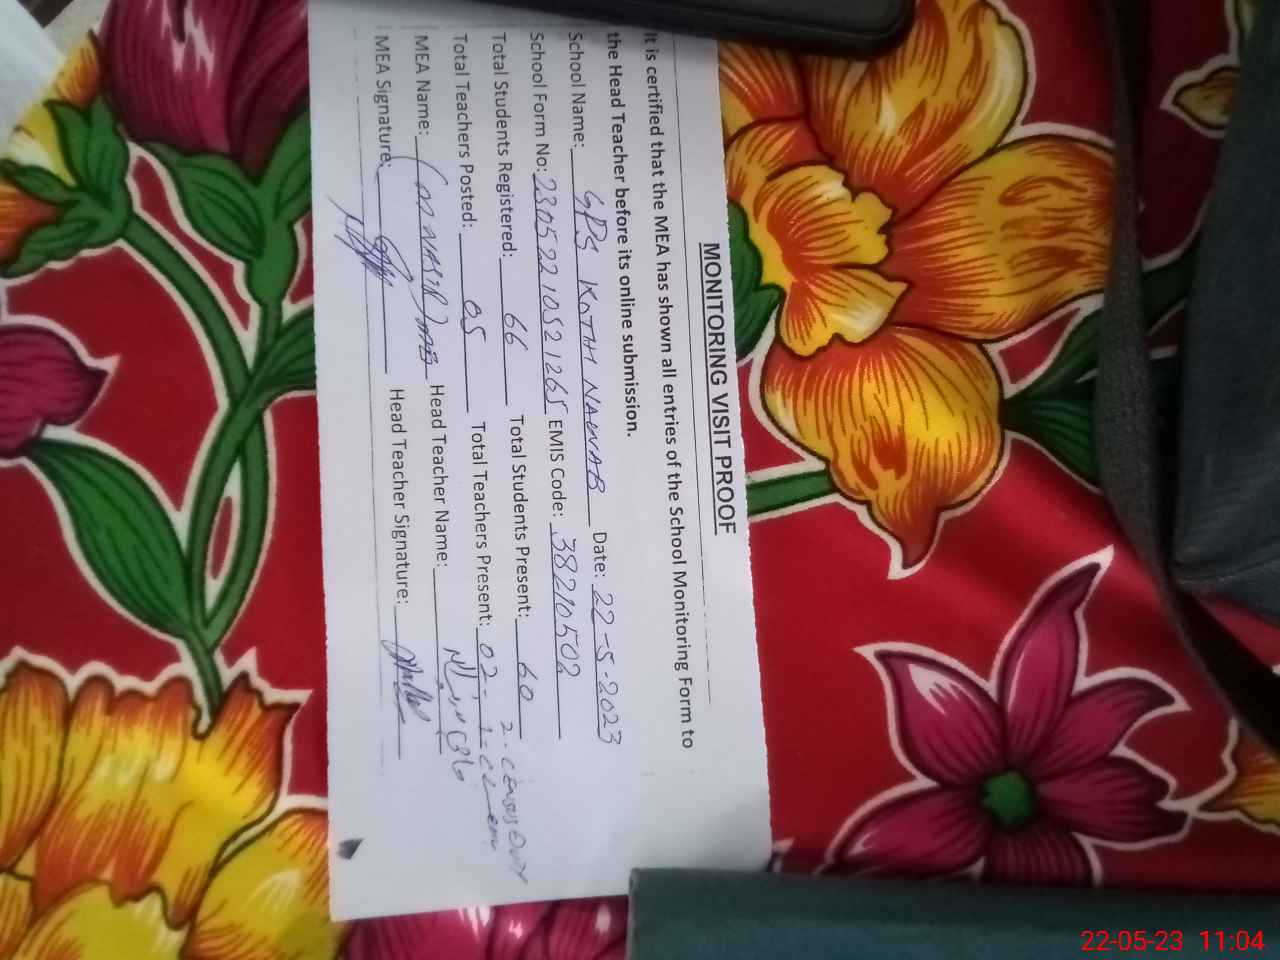 MONITORING VISIT PROOF
It is certified that the MEA has shown all entries of the School Monitoring Form to
the Head Teacher before its online submission.
School Name: GPS KOTH NAWAB Date: 22-5-2023
School Form No: 23052210521265 EMIS Code: 38210502
Total Students Registered: 66 Total Students Present: 60
Total Teachers Posted: 05 Total Teachers Present: 02 - 2 - CENSUS DUTY
1 - CL
MEA Name: NASIR Head Teacher Name:
MEA Signature: Head Teacher Signature:
22-05-23 11:04